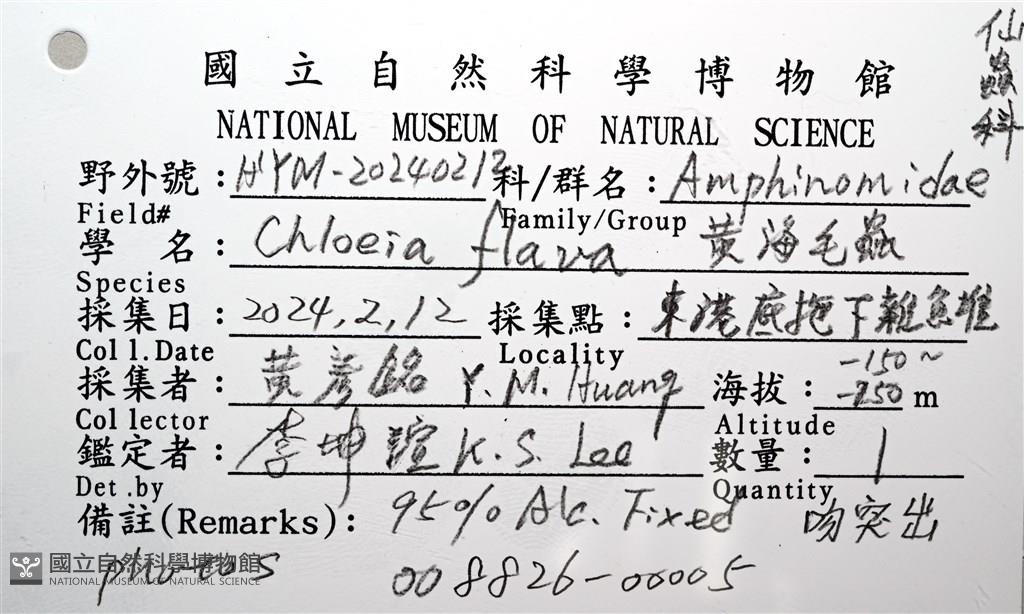 仙蟲科
國立自然科學博物館
NATIONAL MUSEUM OF NATURAL SCIENCE
野外號：HYM-20240212 科/群名：Amphinomidae
Field# Family/Group
學 名：Chloeia flava 黃海毛蟲
Species
採集日：2024,2,12 採集點：東港底拖下雜魚堆
Coll.Date Locality
採集者：黃彥銘 Y.M. Huang 海拔：-150~-250 m
Collector Altitude
鑑定者：李坤瑄 K.S. Lee 數量：1
Det.by Quantity
備註(Remarks)：95% Alc. Fixed 吻突出
photos 008826-00005
國立自然科學博物館
NATIONAL MUSEUM OF NATURAL SCIENCE